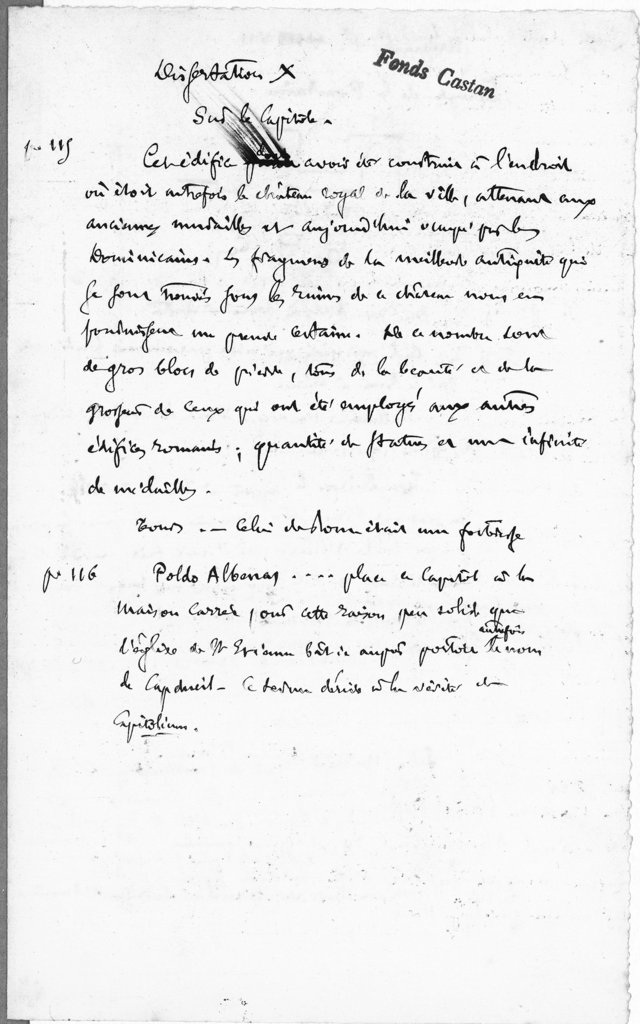 Dissertation X
Fonds Castan
Sur le Capitole.
p. 115
Cet édifice doit avoir été construit à l'endroit
où étoit autrefois le château royal de la ville, attenant aux
anciennes murailles et aujourd'hui occupé par les
Dominicains. Les fragmens de la meilleure antiquité qui
se sont trouvés sous les ruines de ce château nous en
fournissent une preuve certaine. De ce nombre sont
de gros blocs de pierre, tous de la beauté et de la
grosseur de ceux qui ont été employés aux autres
édifices romains ; quantité de statues et une infinité
de médailles.
... Celui de Rome était une forteresse
p. 116
Poldo Albenas .... place ce Capitole à la
Maison Carrée, pour cette raison peu solide que
l'église de St Etienne bâtie auprès portoit autrefois le nom
de Capdueil – Ce terme dérive à la vérité de
Capitolium.